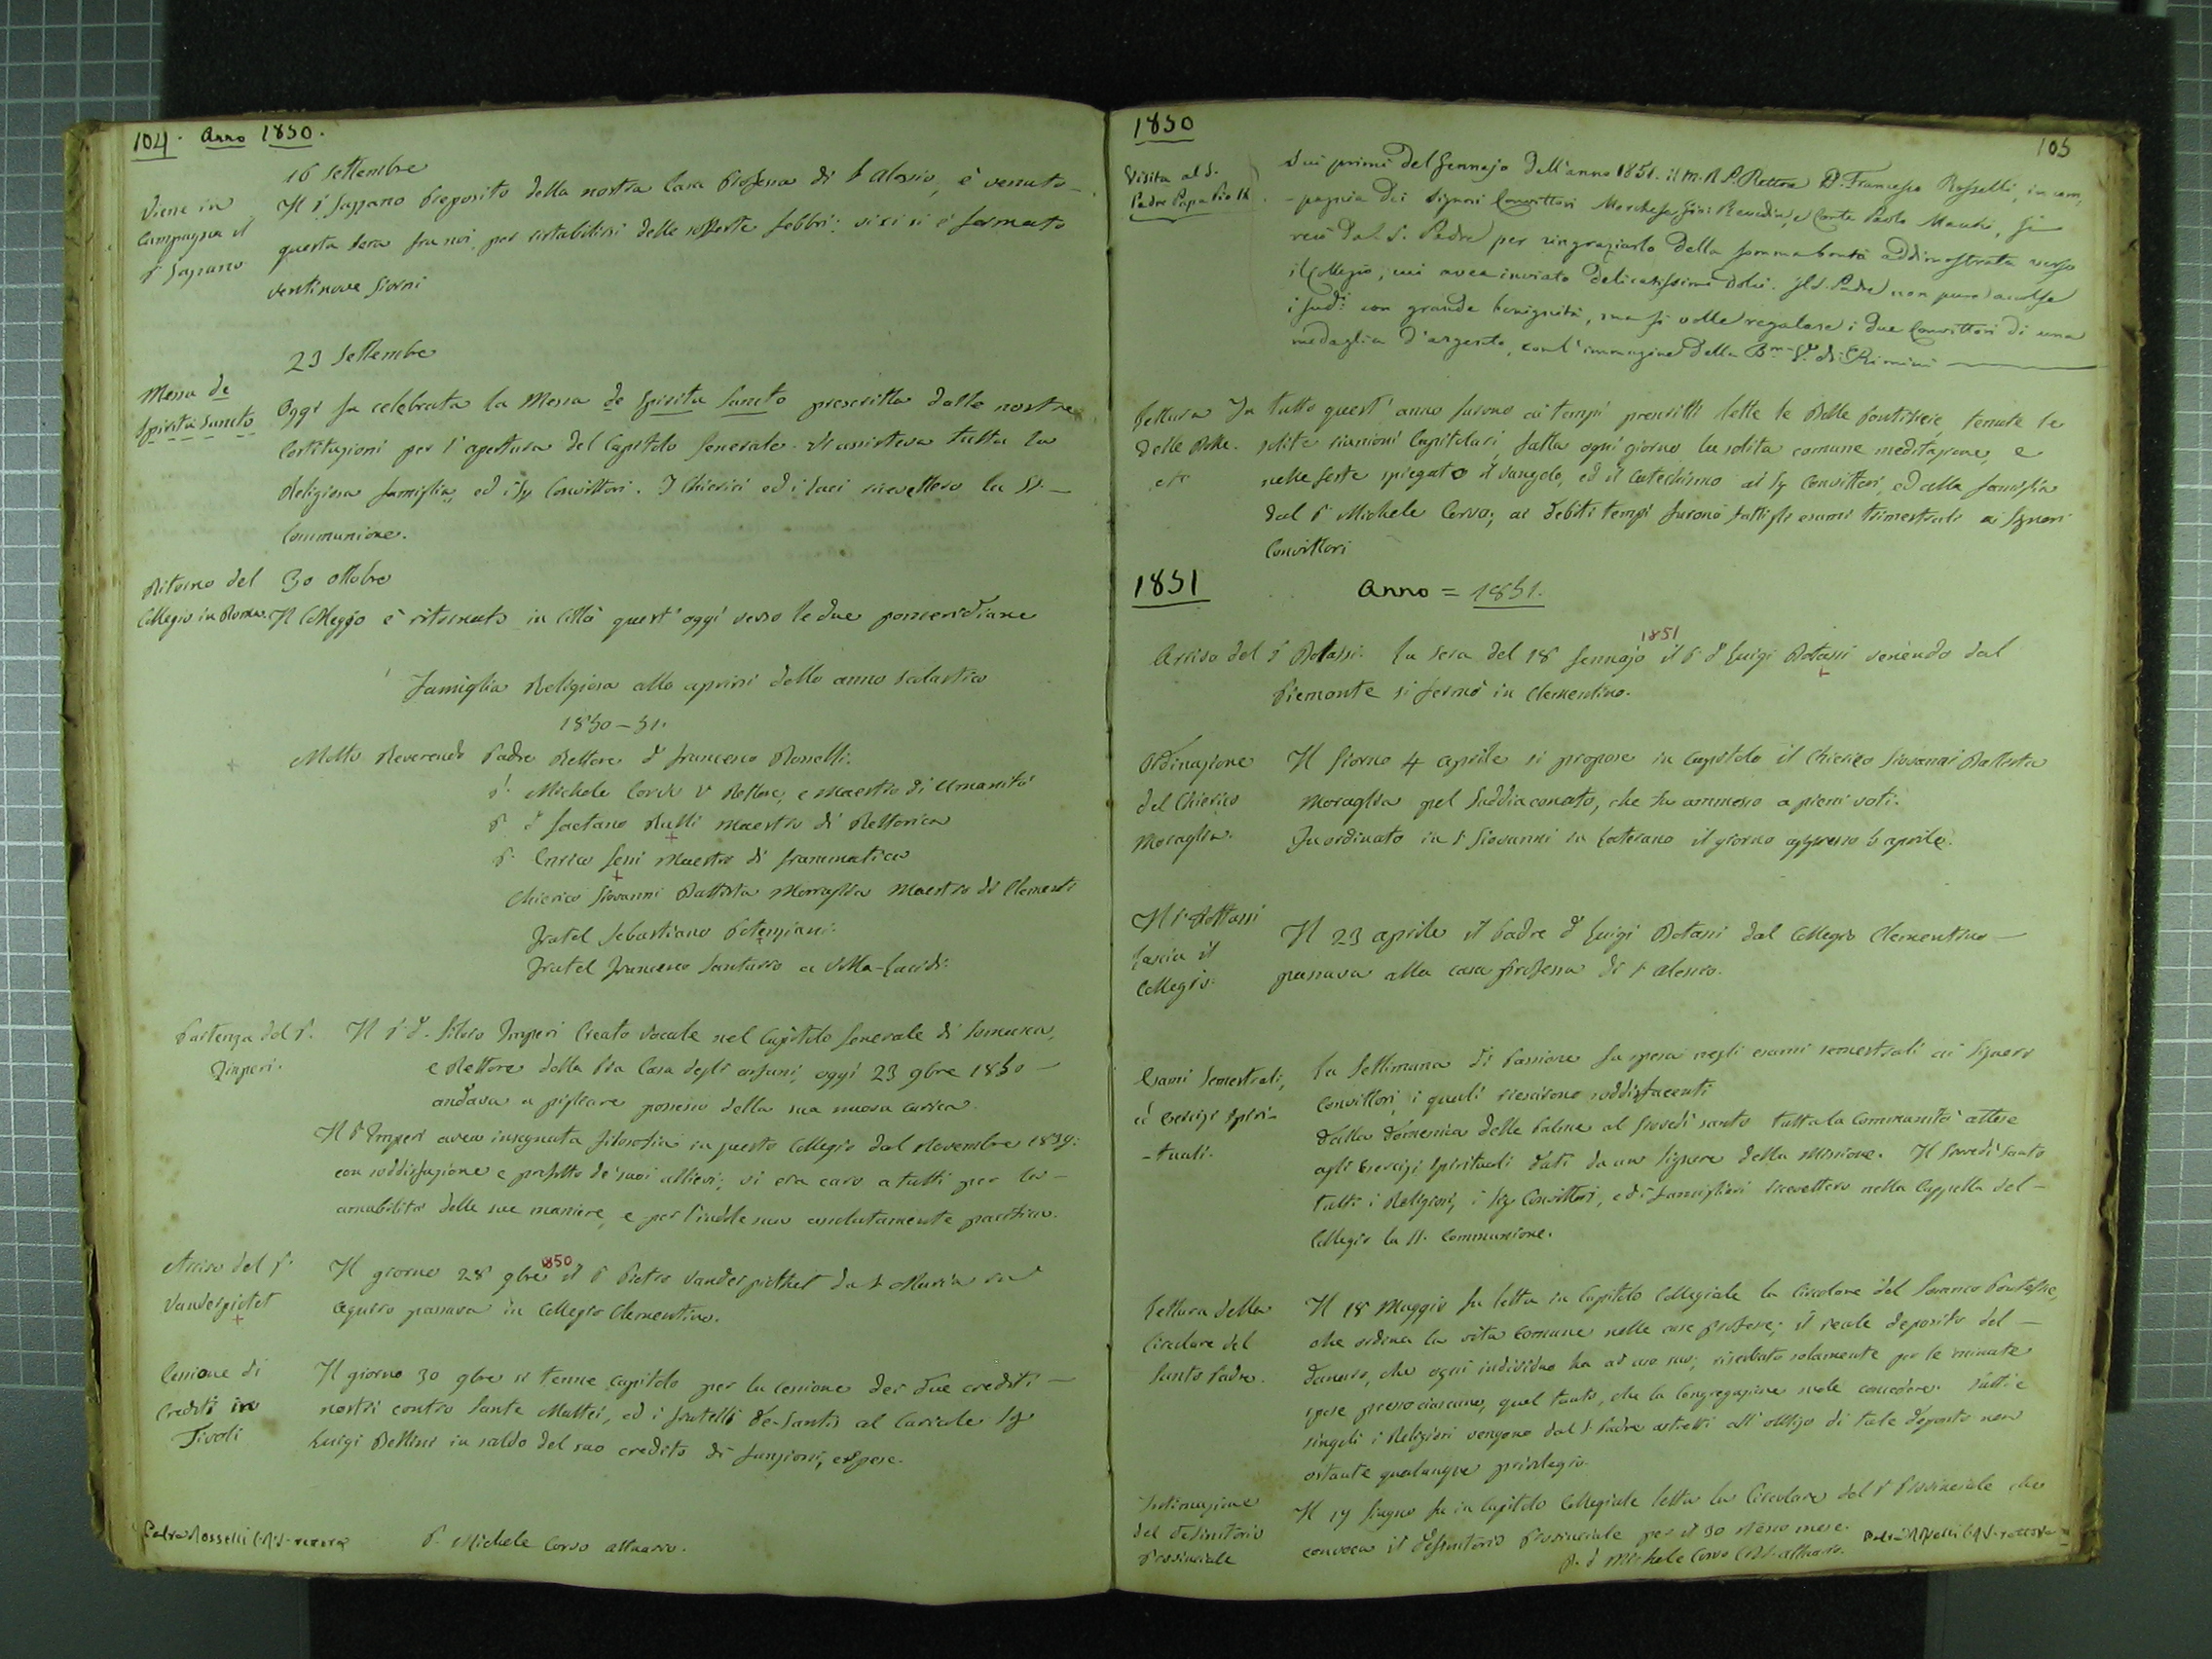 104. Anno 1850.
16 Settembre
Viene in
Campagna il
P. Sappano
Il P. Sappano Preposito della nostra Casa Professa di S. Alessio, è venuto
questa sera fra noi, per ristabilirsi delle sofferte febbri: vi si è fermato
ventinove giorni
23 Settembre
Messa de
Spiritu Sancto
Oggi fu celebrata la Messa de Spiritu Sancto prescritta dalle nostre
Costituzioni per l'apertura del Capitolo Generale. Vi assisteva tutta la
Religiosa famiglia, ed i Sig. Convittori. I Chierici ed i Laici ricevettero la SS.
Communione.
Ritorno del
Collegio in Roma.
30 ottobre
Il Collegio è ritornato in Città quest'oggi verso le due pomeridiane
Famiglia Religiosa allo aprirsi dello anno scolastico
1850-51.
Molto Reverendo Padre Rettore D. Francesco Rosselli.
P. Michele Corvo V. Rettore, e Maestro di Umanità
P. D. Gaetano Rulli Maestro di Rettorica
P. Enrico Gessi Maestro di Grammatica
Chierico Giovanni Battista Moraglia Maestro di Elementi
Fratel Sebastiano Potenziani.
Fratel Francesco Santurro a Villa-Lucidi.
Partenza del P.
Imperi.
Il P. D. Silvio Imperi Creato Vocale nel Capitolo Generale di Somasca,
e Rettore della Pia Casa degli orfani, oggi 23 9bre 1850
andava a pigliare possesso della sua nuova carica.
Il P. Imperi avea insegnata filosofia in questo Collegio dal Novembre 1839:
con soddisfazione e profitto de' suoi allievi; vi era caro a tutti per la
amabilità delle sue maniere, e per l'indole sua assolutamente pacifica.
Arrivo del P.
Vanderpictet
Il giorno 28 9bre 850 il P. Pietro Vanderpicthet da S. Maria in
Aquiro passava in Collegio Clementino.
Cessione di
Crediti in
Tivoli
Il giorno 30 9bre si tenne capitolo per la cessione dei due crediti
nostri contro Sante Mattei, ed i fratelli De-Santis al Curiale Sig.
Luigi Bellini in saldo del suo credito di funzioni, e spese.
P. Michele Corvo attuario.
1850
105
Visita al S.
Padre Papa Pio IX
Sui primi del Gennajo dell'anno 1851. il M.R.P. Rettore D. Francesco Rosselli, in com-
-pagnia dei Signori Convittori Marchese e Conte Paolo Macchi, si
recò dal S. Padre per ringraziarlo della somma bontà addimostrata verso
il Collegio, cui avea inviato delicatissimi dolci. Il S. Padre non pure accolse
i sudi. con grande benignità, ma si volle regalare i due Convittori di una
medaglia d'argento, coll'immagine della Bma. V. di Rimini
Lettura
delle Bolle.
etc
In tutto quest'anno furono ai tempi prescritti lette le Bolle Pontificie, tenute le
solite riunioni Capitolari, fatta ogni giorno la solita comune meditazione, e
nelle feste spiegato il Vangelo, ed il Catechismo ai Sig. Convittori, ed alla famiglia
dal P. Michele Corvo; ai debiti tempi furono fatti gli esami trimestrali ai Signori
Convittori
1851
Anno = 1851.
Arrivo del P. Botassi. La sera del 18 Gennajo 1851 il P. D. Luigi Botassi venendo dal
Piemonte si fermò in Clementino.
Ordinazione
del Chierico
Moraglia.
Il Giorno 4 aprile si propose in Capitolo il Chierico Giovanni Battista
Moraglia pel Suddiaconato, che fu ammesso a pieni voti.
Fu ordinato in S. Giovanni in Laterano il giorno appresso 5 aprile.
Il P. Bottassi
lascia il
Collegio.
Il 23 aprile il Padre D. Luigi Botassi dal Collegio Clementino
passava alla casa professa di S. Alessio.
Esami Semestrali,
ed esercizi spiri-
-tuali.
La Settimana di Passione fu spesa negli esami semestrali ai Signori
Convittori, i quali riescirono soddisfacenti
Dalla Domenica delle Palme al Giovedì santo tutta la Communità attese
agli Esercizi Spirituali dati da un Signore della Missione. Il Giovedì Santo
tutti i Religiosi, i Sig. Convittori, ed i famiglieri ricevettero nella Cappella del
Collegio la SS. Communione.
Lettura della
Circolare del
Santo Padre.
Il 18 Maggio fu letta in Capitolo Collegiale la Circolare del Sommo Pontefice,
che ordina la vita comune nelle case professe; il reale deposito del
danaro, che ogni individuo ha ad uso suo; riserbato solamente per le minute
spese presso ciascuno, quel tanto, che la Congregazione suole concedere. Tutti e
singoli i Religiosi vengono dal S. Padre astretti all'obbligo di tale deposito non
ostante qualunque privilegio.
Intimazione
del Definitorio
Provinciale
Il 19 Giugno fu in Capitolo Collegiale letta la Circolare del P. Provinciale che
convoca il Definitorio Provinciale per il 30 stesso mese.
P. D. Michele Corvo C.R.S. attuario.